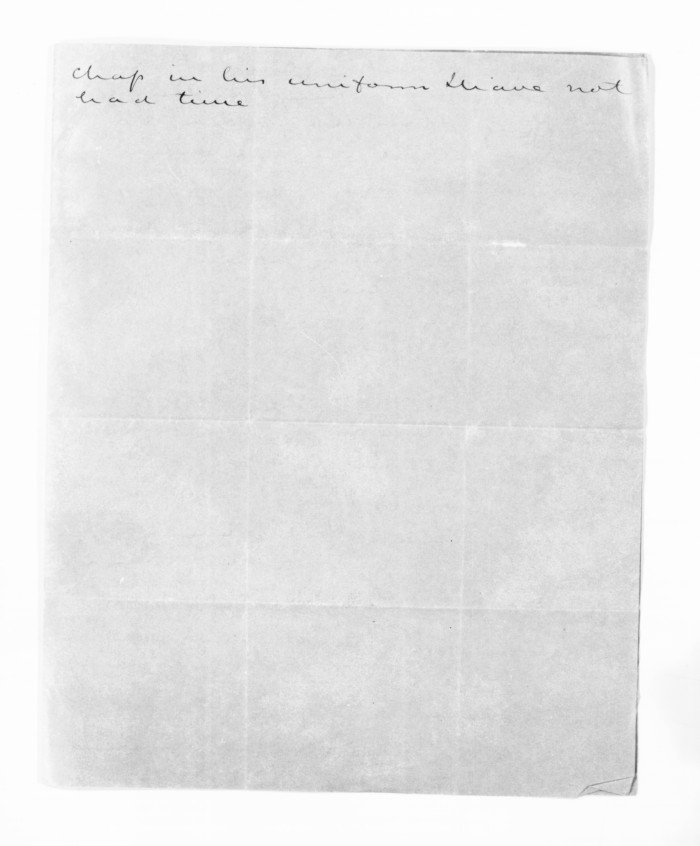 chap in his uniform I have not
had time